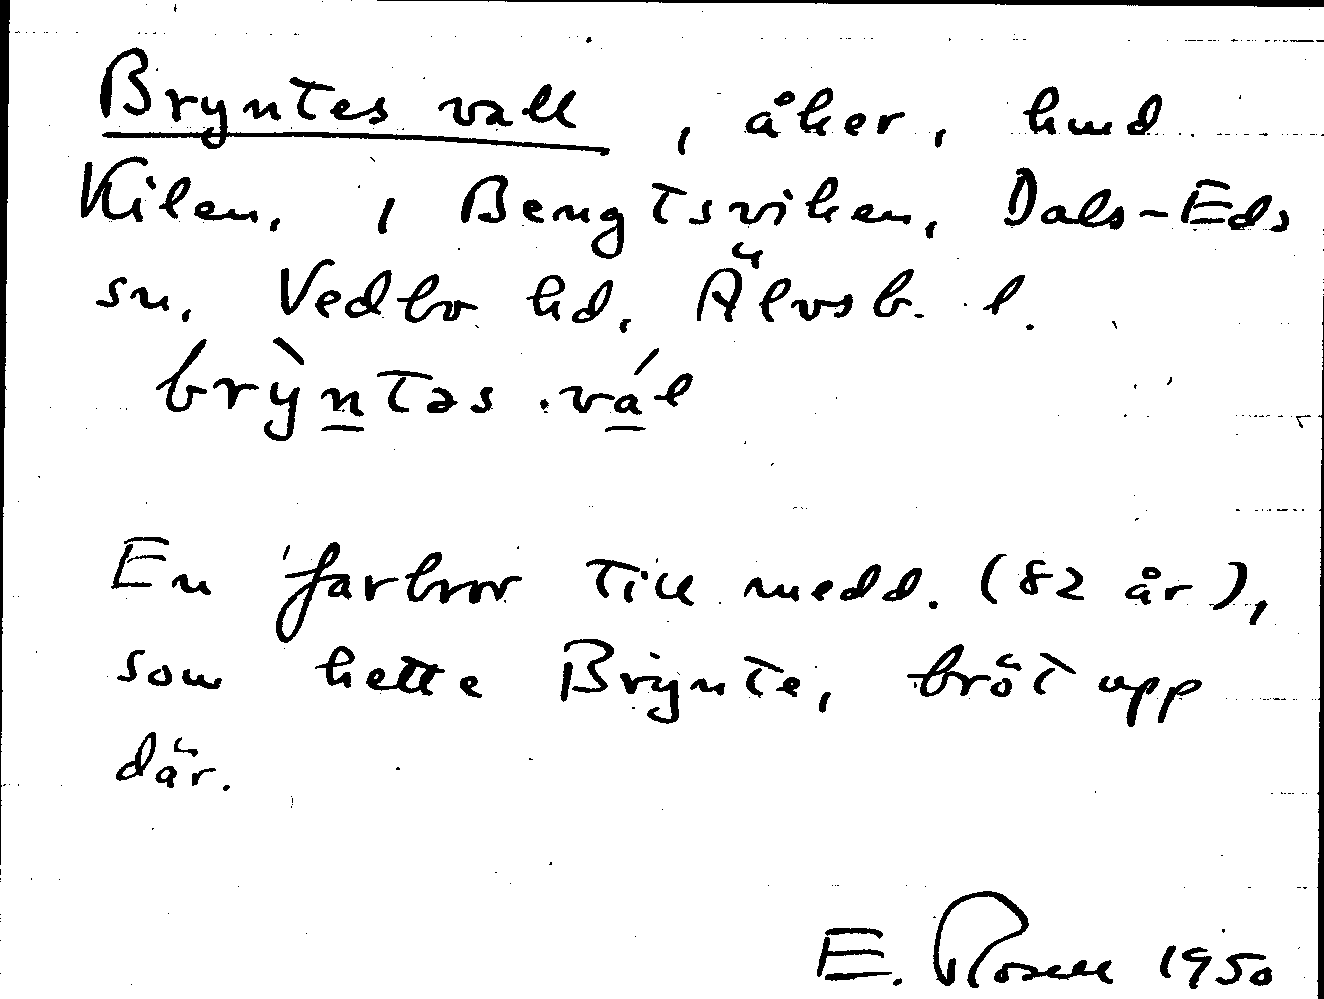 Bryntes vall, åker, hmd
Kilen, 1 Bengtsviken, Dals-Eds
sn, Vedbo hd, Älvsb. l.
brỳntəs .vál
En farbror till medd. (82 år),
som hette Brynte, bröt upp
där.
E. Rosell 1950